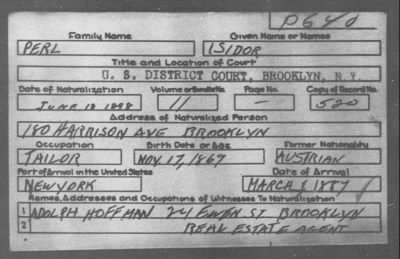 P640
Family Name Given Name or Names
PERL ISIDOR
Title and Location of Court
U. S. DISTRICT COURT, BROOKLYN, N.Y.
Date of Naturalization Volume or Bundle No. Page No. Copy of Record No.
JUNE 18 1898 11 — 520
Address of Naturalized Person
180 HARRISON AVE BROOKLYN
Occupation Birth Date or Age Former Nationality
TAILOR NOV. 17, 1869 AUSTRIAN
Port of Arrival in the United States Date of Arrival
NEW YORK MARCH 1 1887
Names, Addresses and Occupations of Witnesses To Naturalization
1 ADOLPH HOFFMAN 24 EWEN ST BROOKLYN
2 REAL ESTATE AGENT